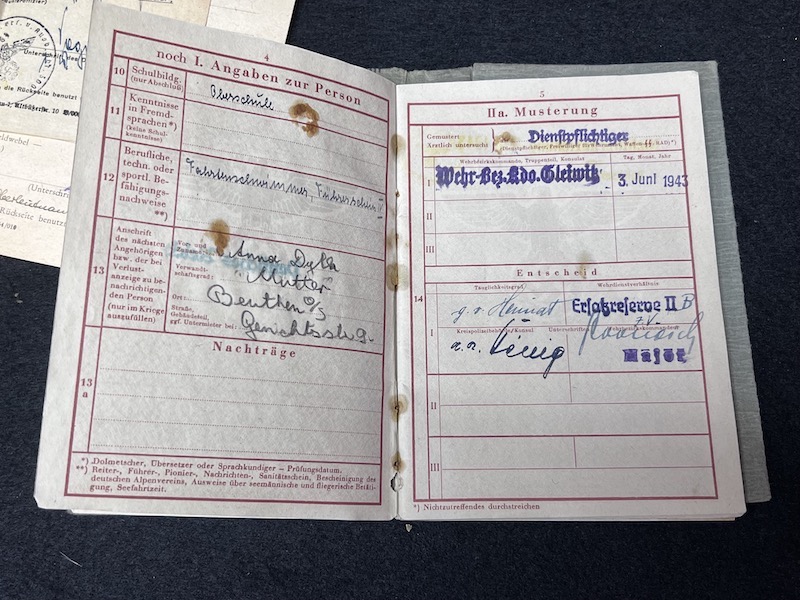 4
noch I. Angaben zur Person
10
Schulbildg.
(nur Abschluß)
Oberschule
11
Kenntnisse
in Fremd-
sprachen*)
(keine Schul-
kenntnisse)
12
Berufliche,
techn. oder
sportl. Be-
fähigungs-
nachweise
**)
Fahrtenschwimmer, Führerschein
13
Anschrift
des nächsten
Angehörigen
bzw. der bei
Verlust-
anzeige zu be-
nachrichtigen-
den Person
(nur im Kriege
auszufüllen)
Vor- und
Zuname:
Anna
Verwandt-
schaftsgrad:
Mutter
Ort:
Beuthen O/S
Straße,
Gebäudeteil,
ggf. Untermieter bei:
Gerichtsstr. 9.
Nachträge
13
a
*) Dolmetscher, Übersetzer oder Sprachkundiger – Prüfungsdatum.
**) Reiter-, Führer-, Pionier-, Nachrichten-, Sanitätsschein, Bescheinigung des
deutschen Alpenvereins, Ausweise über seemännische und fliegerische Betäti-
gung, Seefahrtzeit.
5
IIa. Musterung
Gemustert
Ärztlich untersucht
Dienstpflichtiger
Wehrbezirkskommando, Truppenteil, Konsulat
Tag, Monat, Jahr
I
Wehr-Bez.Kdo.Gleiwitz
3. Juni 1943
II
III
Entscheid
Tauglichkeitsgrad
Wehrdienstverhältnis
14
g. v. Heimat
Ersatzreserve II B
I
Kreispolizeibehörde/Konsul
Unterschriften
König
Major
II
III
*) Nichtzutreffendes durchstreichen